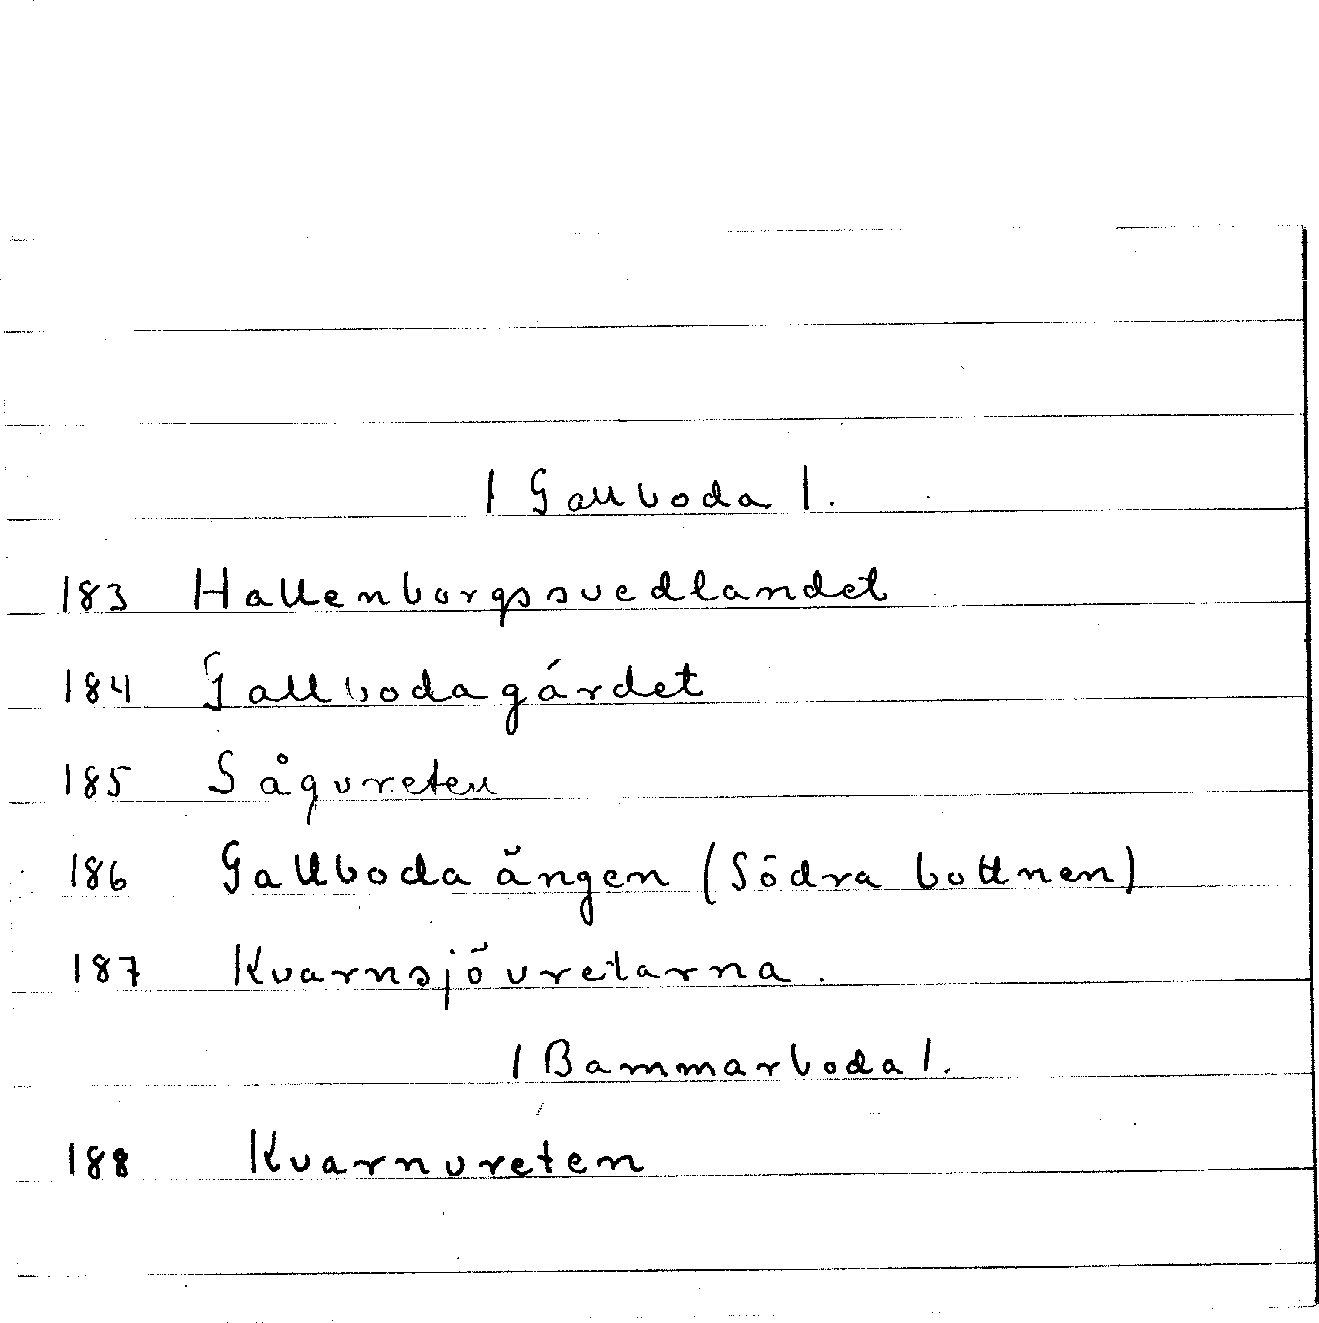 | Gallboda |.
183 Hallenborgssvedlandet
184 Gallbodagärdet
185 Sågvreten
186 Gallboda ängen (Södra bottnen)
187 Kvarnsjövretarna.
| Bammarboda |.
188 Kvarnvreten